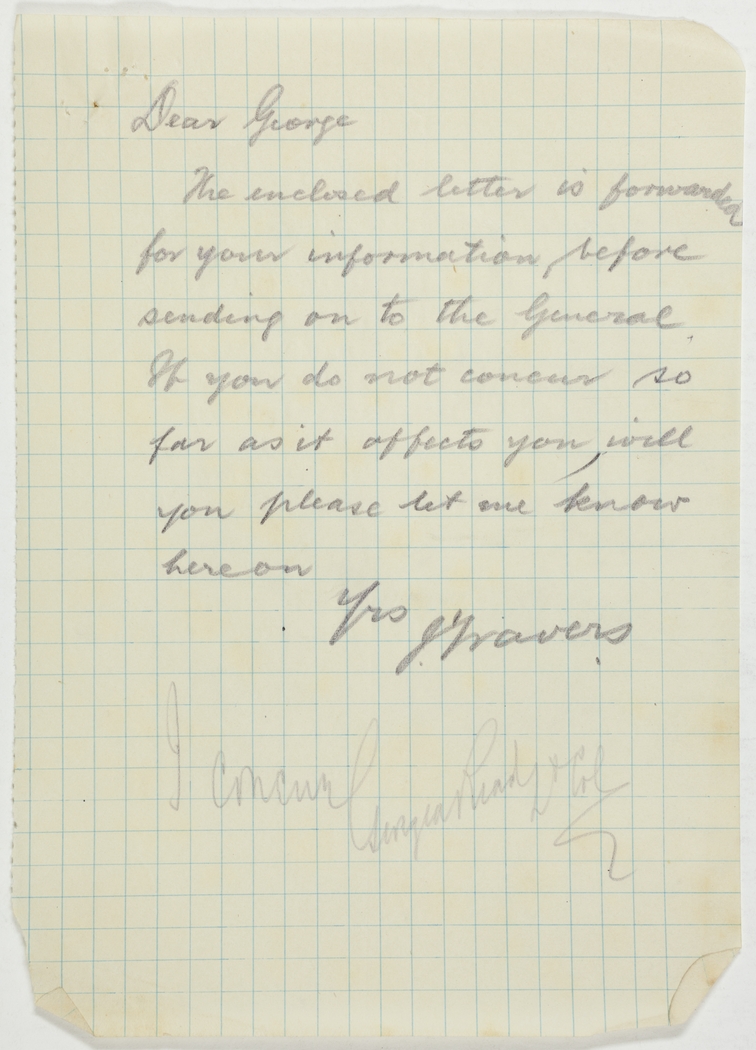 Dear George
The enclosed letter is forwarded
for your information, before
sending on to the General.
If you do not concur so
far as it affects you, will
you please let me know
hereon
Yrs J Travers
I concur George Ready Lt Col